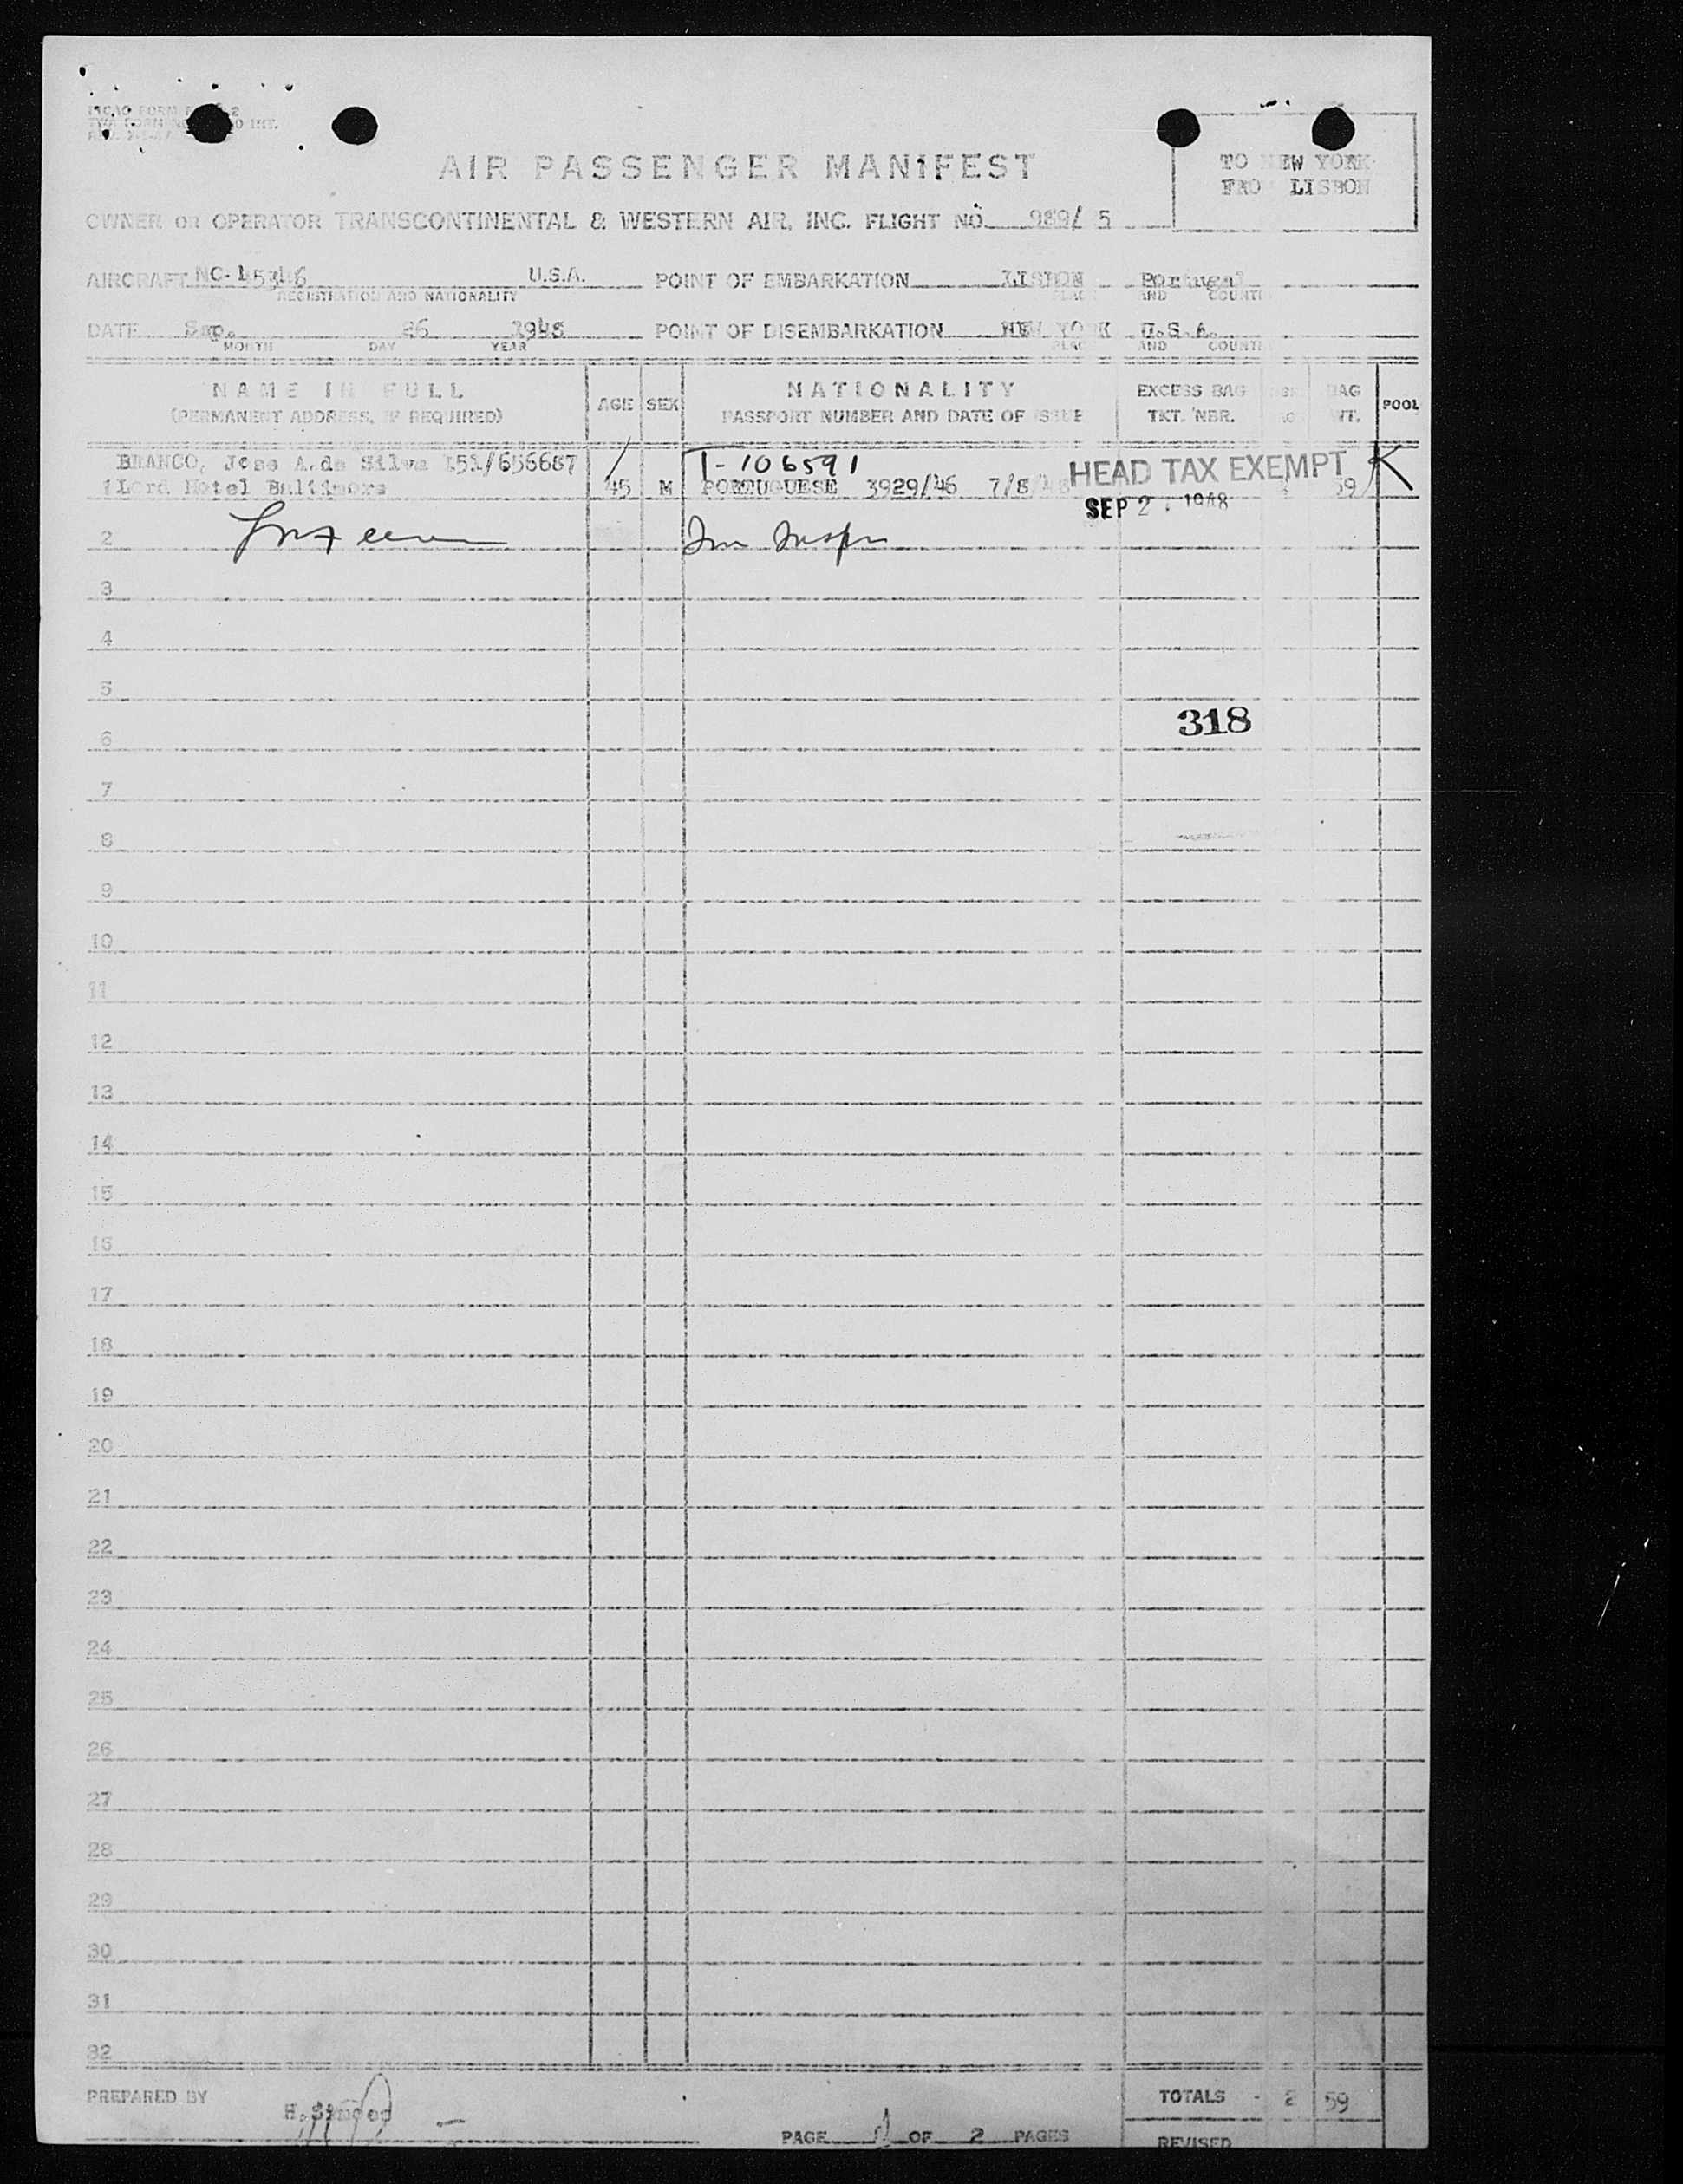 TO NEW YORK
FRO LISBON
AIR PASSENGER MANIFEST
OWNER OR OPERATOR TRANSCONTINENTAL & WESTERN AIR, INC. FLIGHT NO. 989/ 5
AIRCRAFT NC-45346 U.S.A. POINT OF EMBARKATION LISBON Portugal
REGISTRATION AND NATIONALITY PLAC AND COUNT
DATE Sep. 26 1948 POINT OF DISEMBARKATION NEW YORK U.S.A.
MONTH DAY YEAR PLAC AND COUNT
NAME IN FULL AGE SEX NATIONALITY EXCESS BAG BAG POOL
(PERMANENT ADDRESS, IF REQUIRED) PASSPORT NUMBER AND DATE OF ISSUE TKT. NBR. WT.
BRANCO, Jose A. da Silva 151/656687 T-106591 HEAD TAX EXEMPT K
1 Lord Hotel Baltimore 45 M PORTUGUESE 3929/46 7/8/ 59
SEP 2 1948
2
3
4
5
318
6
7
8
9
10
11
12
13
14
15
16
17
18
19
20
21
22
23
24
25
26
27
28
29
30
31
32
PREPARED BY TOTALS - 2 59
PAGE OF 2 PAGES REVISED